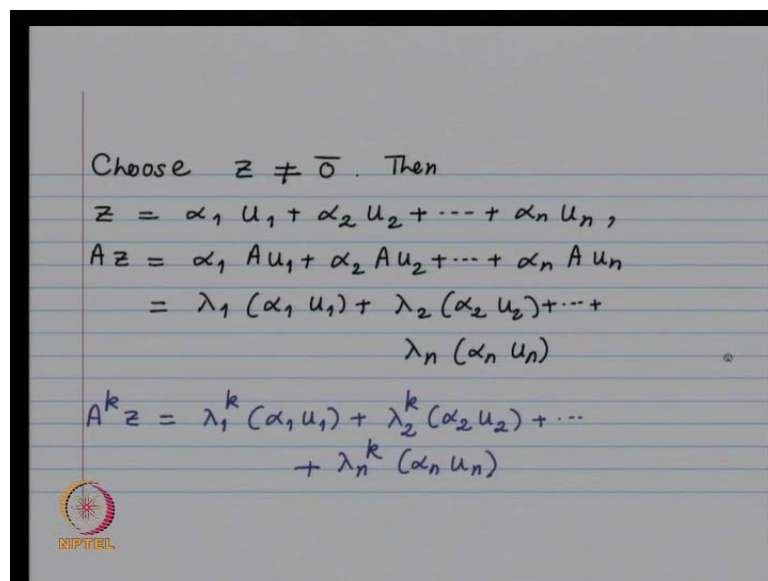 Choose z ≠ 0̄. Then
z = α₁ u₁ + α₂ u₂ + ---- + αₙ uₙ ,
A z = α₁ A u₁ + α₂ A u₂ + --- + αₙ A uₙ
= λ₁ (α₁ u₁) + λ₂ (α₂ u₂) + --- +
λₙ (αₙ uₙ)
Aᵏ z = λ₁ᵏ (α₁ u₁) + λ₂ᵏ (α₂ u₂) + ---
+ λₙᵏ (αₙ uₙ)
NPTEL